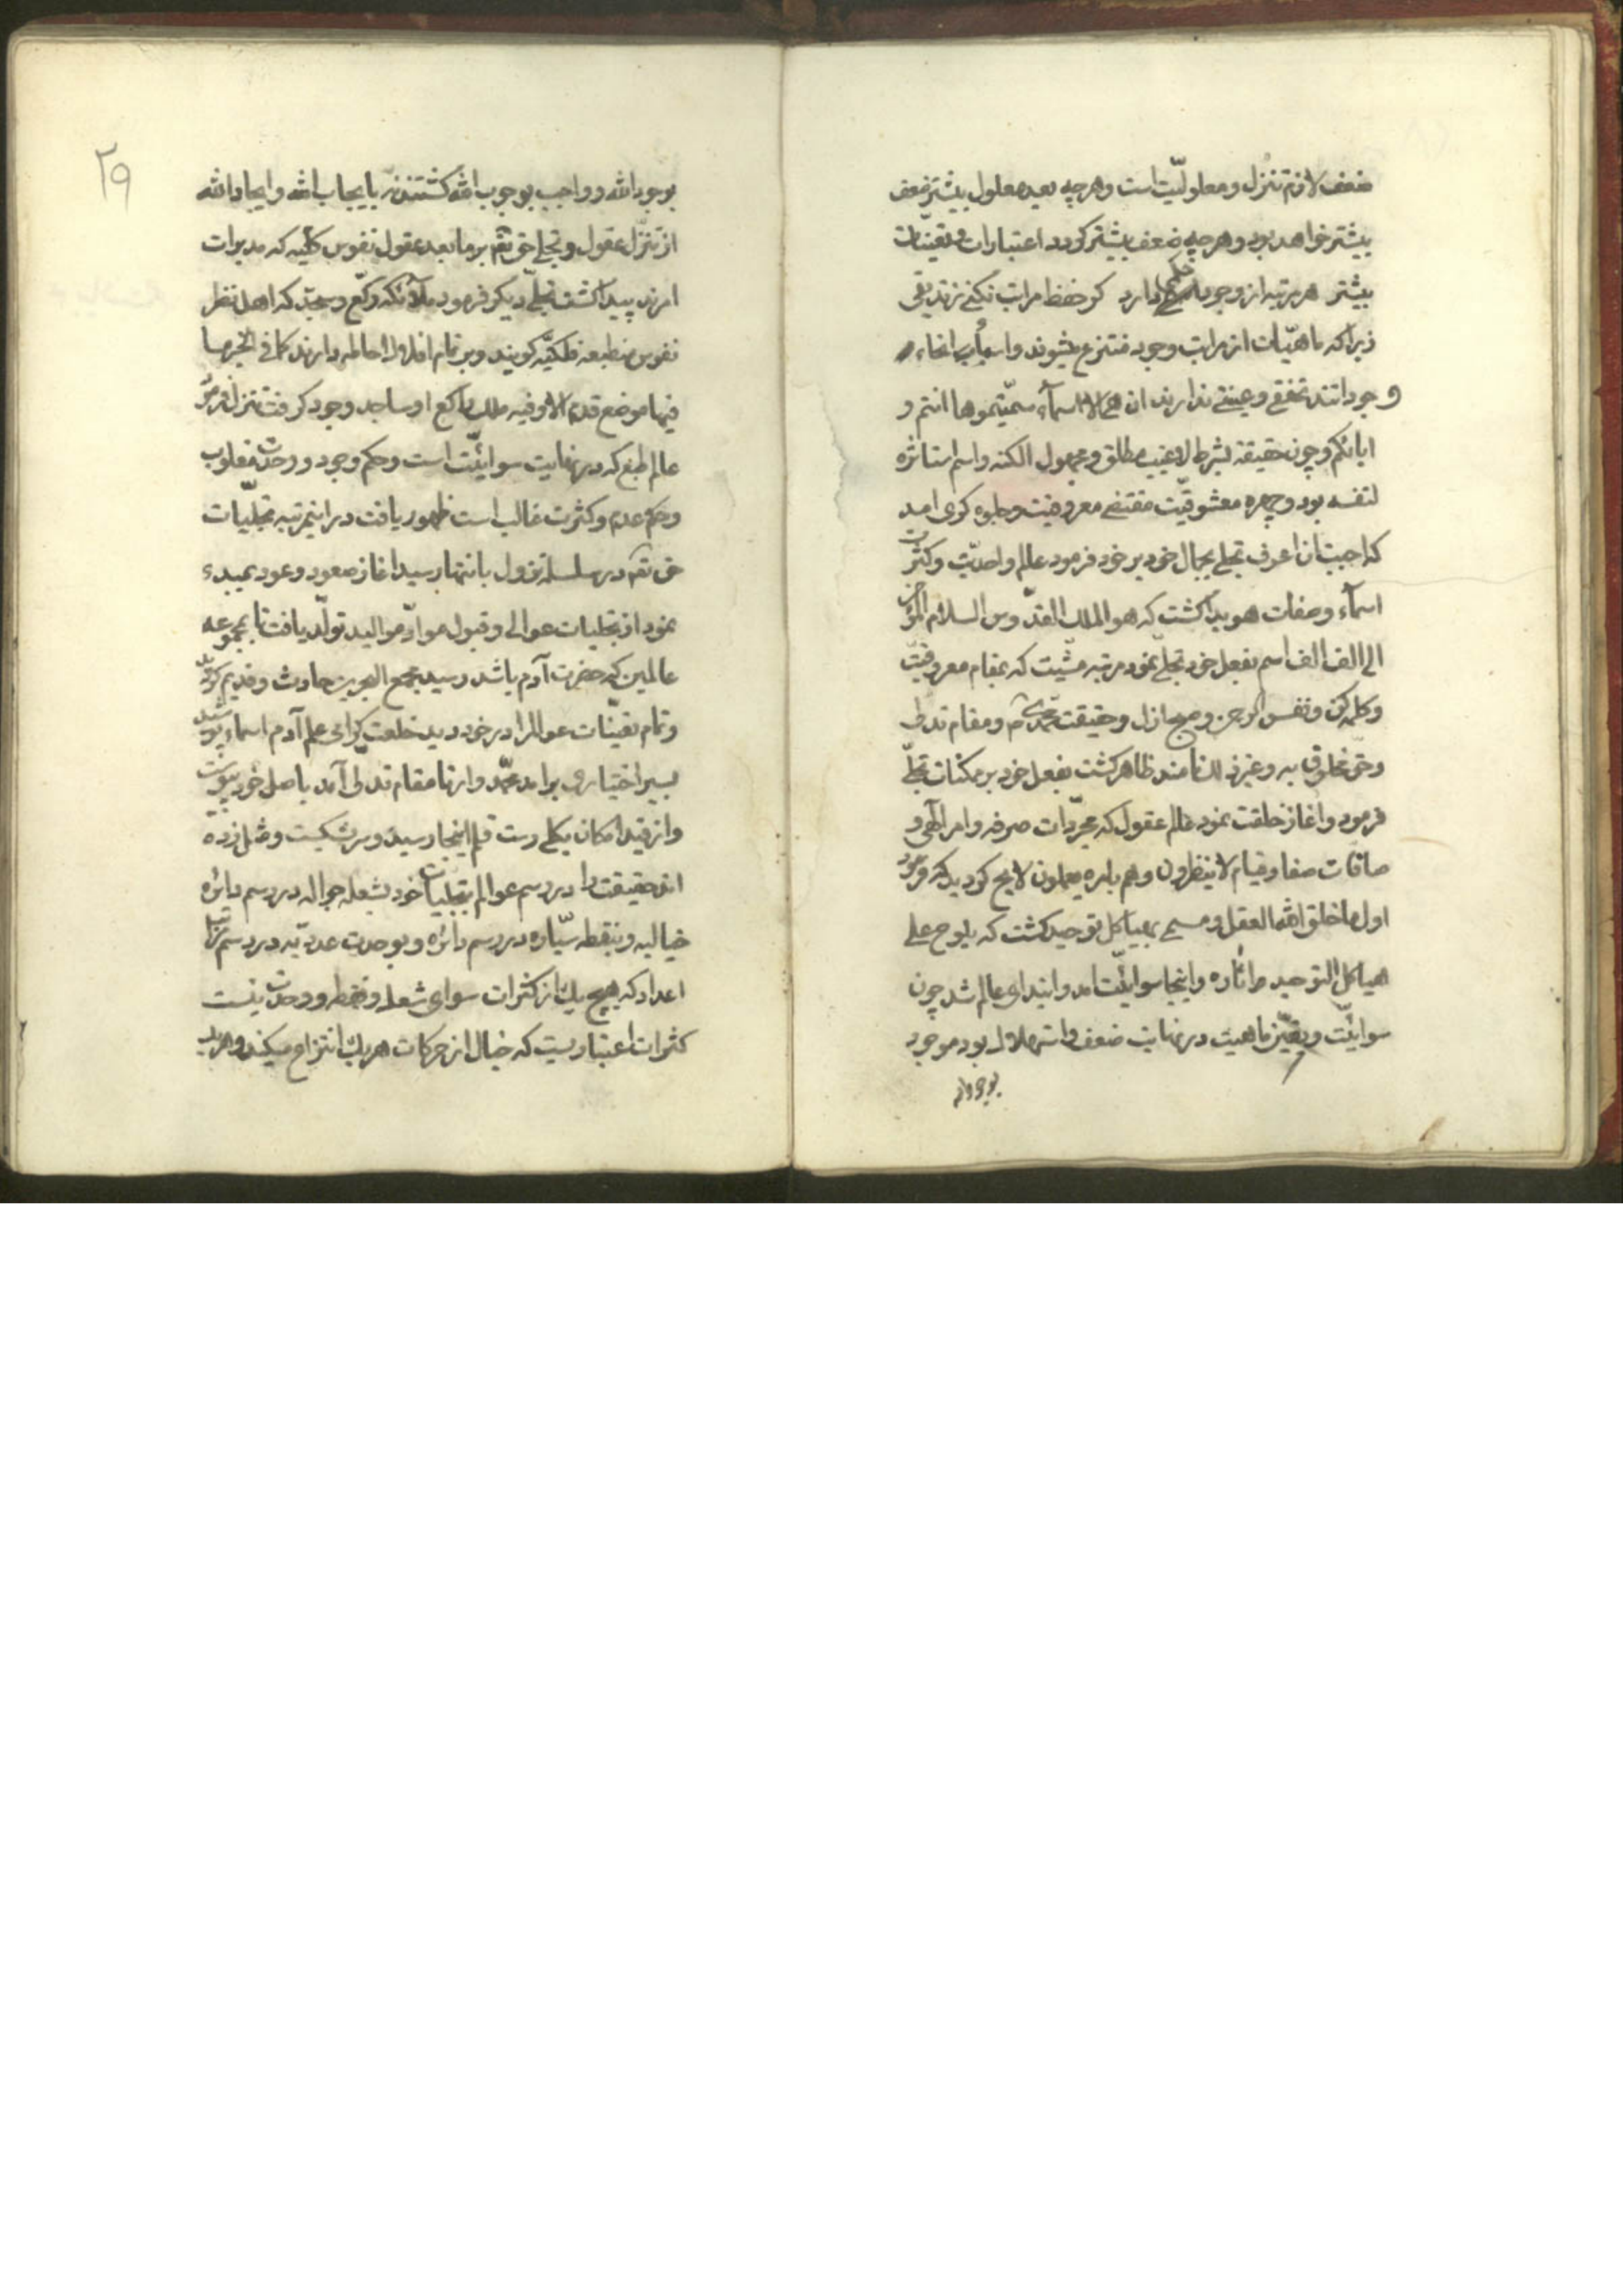 ضعف لازم تنزل و معلولیّت است و هرچه بعید معلول بیشتر ضعف
بیشتر خواهد بود و هرچه ضعف بیشتر کردد اعتبارات و تعیّنات
بیشتر هر مرتبه از وجود حکمی دارد کر حفظ مراتب نکنی زندیقی
زیرا که ماهیّات از مراتب وجود منتزع میشوند و انحاء
وجوداتند تحققی و عینیتی ندارند ان هی الا اسمآء سمّیتموها انتم و
اباؤکم و چون حقیقة بشرط لا غیب مطلق و مجهول الکنه و اسم استاثره
لنفسه بود و چهره معشوقیّت مقتضی معروفیت و جلوه کری امد
که احببت ان اعرف تجلی بجمال خود بر خود فرمود عالم واحدیّت و کثرت
اسمآء و صفات هویدا کشت که هو الملک القدّوس السلام المؤمن
الی الف الف اسم بفعل خود تجلی نمود مرتبه مشیّت که بمقام معروفیّت
و کلمه کن و نفس الرحمن و صبح ازل و حقیقت محمدیّه و مقام تدلی
و حق مخلوق به و غیر ذلک نامند ظاهر کشت بفعل خود بر ممکنات تجلّی
فرمود و اغاز خلقت نمود عالم عقول که مجرّدات صرفه و امر الهی و
صافات صفا و قیام لا ینظرون و هم بامره یعملون لایح کردید که فرمود
اول ما خلق الله العقل و مسمی بهیاکل توحید کشت که یلوح علی
هیاکل التوحید و اثاره و اینجا سوائیّت امد و ابتدای عالم شد چون
سوائیّت و تعیّن ماهیت در نهایت ضعف و استهلاک بود موجود
بوجود الله
۲۹
بوجود الله و واجب بوجوب الله کشتند نه بایجاب الله و ایجاد الله
از تنزّل عقول و تجلی حق تعم بر ما بعد عقول نفوس کلیه که مدبرات
امرند پیدا کشت تجلّی دیکر فرمود ملآئکه رکّع و سجّد که اهل نظر
نفوس منطبعه فلکیّه کویند و بر تمام افلاک احاطه دارند کما فی الخبر ما
فیها موضع قدم الا و فیه ملک راکع او ساجد وجود کرفت تنزل فرمود
عالم طبع که در نهایت سوائیّت است و حکم وجود و وحدت مغلوب
و حکم عدم و کثرت غالب است ظهور یافت در اینمرتبه تجلّیات
حق تعم در سلسله نزول بانتها رسید اغاز صعود و عود بمبدء
نمود از تجلیات عوالی و قبول موادّ موالید تولّد یافت تا بمجموعه
عالمین که حضرت آدم باشد رسید مجمع البحرین حادث و قدیم کردید
و تمام تعیّنات عوالم را در خود دید خلعت کرامی علم آدم اسماء پوشید
بسیر اختیاری برامد محمّد و ار تا مقام تدلی آمد باصل خود پیوست
و از قید امکان بکلی رست قلم اینجا رسید و سر بشکست و مثل زده
این حقیقت را در رسم عوالم بتجلّیات خود بشعله جواله در رسم دائره
خیالیه و بنقطه سیّاره در رسم دائره و بوحدت عددیّه در رسم مراتب
اعداد که هیچ یک از کثرات سوای شعله و نقطه و وحدت نیست
کثرات اعتباریست که خیال از حرکات هر یک انتزاع میکند و هر یک